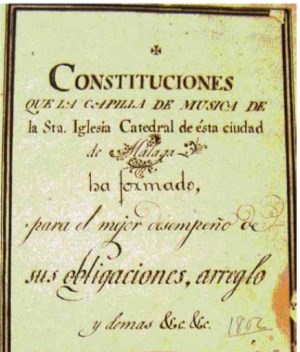 CONSTITUCIONES
QUE LA CAPILLA DE MUSICA DE
la Sta. Iglesia Catedral de ésta ciudad
de Malaga
ha formado,
para el mejor desempeño de
sus obligaciones, arreglo
y demas &c. &c. 1802